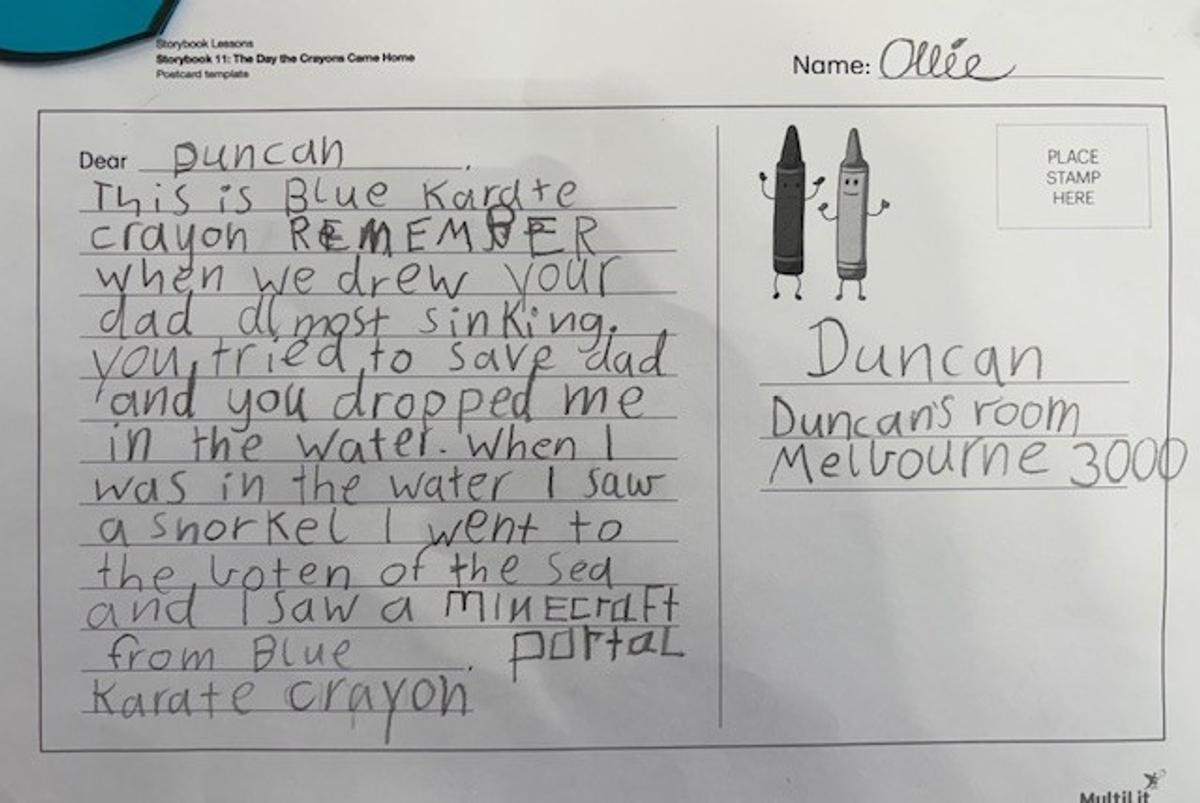 Storybook Lessons
Storybook 11: The Day the Crayons Came Home
Postcard template
Name: Ollie
Dear Duncan.
This is Blue Karate
crayon REMEMBER
when we drew your
dad almost sinking.
you tried to save dad
and you dropped me
in the water. When I
was in the water I saw
a snorkel I went to
the boten of the sea
and I saw a MINECraFt
portaL
from Blue.
Karate crayon
PLACE
STAMP
HERE
Duncan
Duncan's room
Melbourne 3000
MultiLit